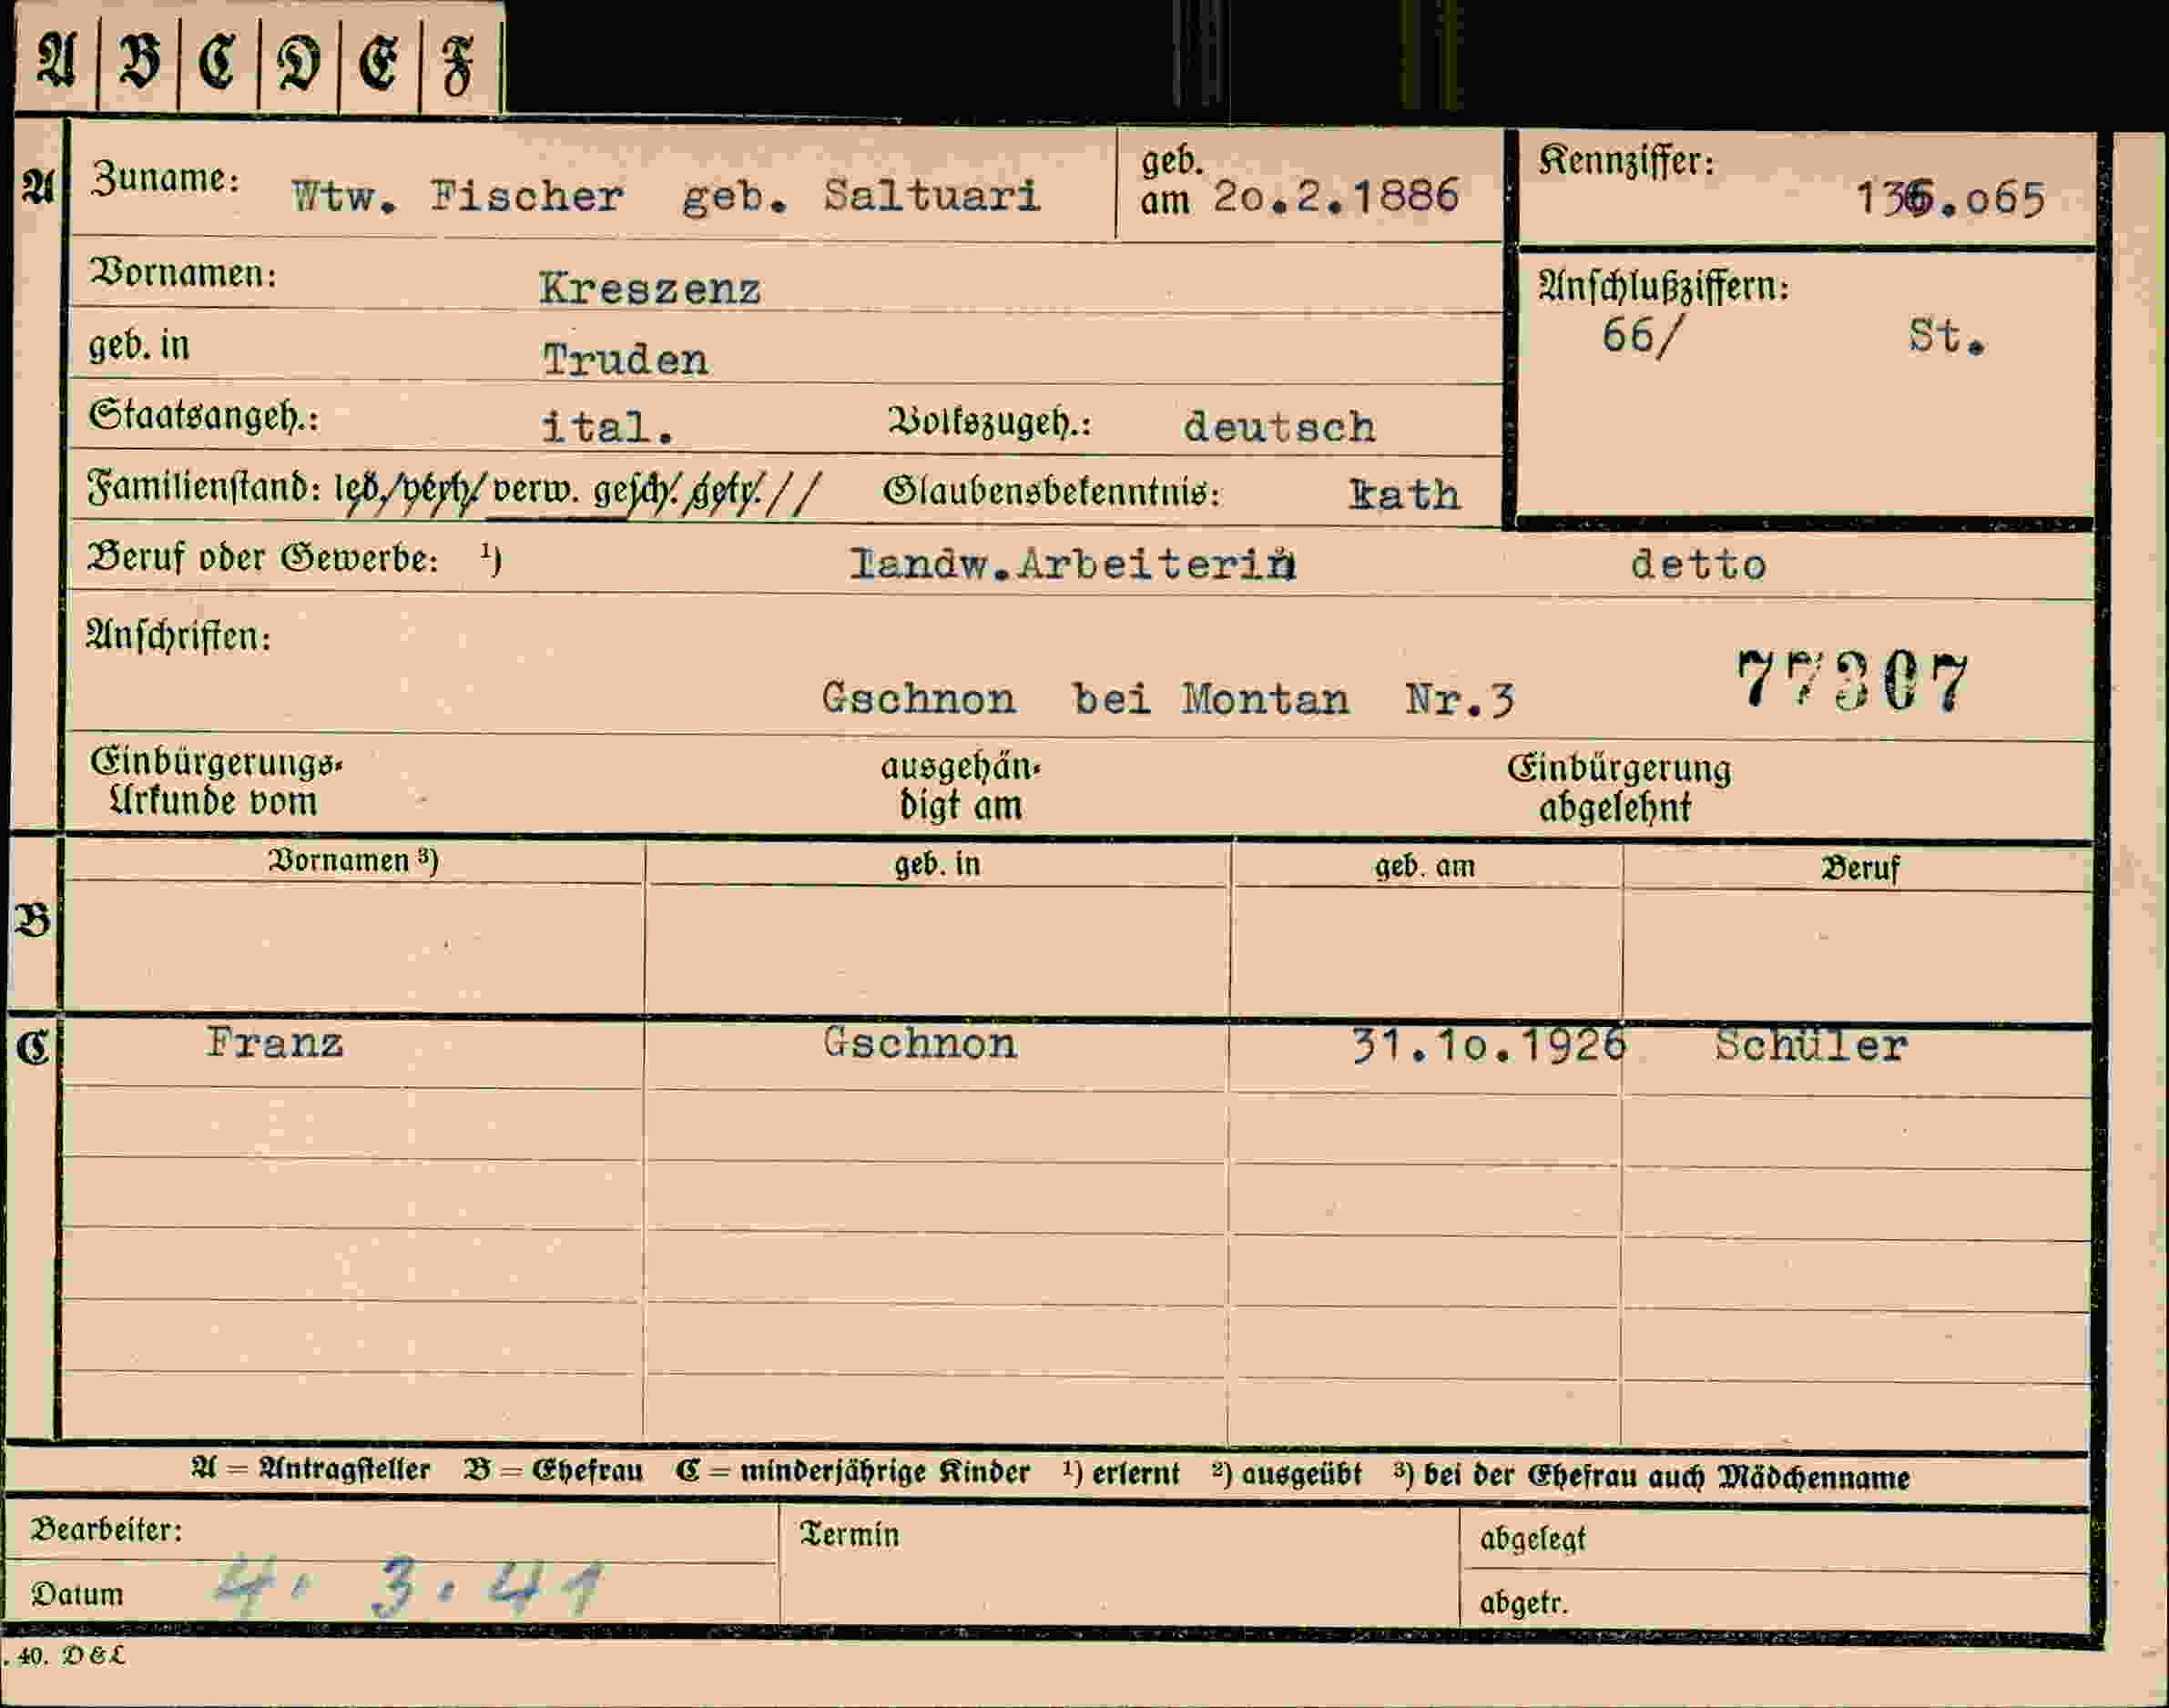 A B C D E F
A Zuname: Wtw. Fischer geb. Saltuari geb. am 20.2.1886 Kennziffer: 136.065
Vornamen: Kreszenz Anschlußziffern:
66/ St.
geb. in Truden
Staatsangeh.: ital. Volkszugeh.: deutsch
Familienstand: led./verh/verw. gesch/. getr./// Glaubensbekenntnis: kath
Beruf oder Gewerbe: ¹) landw.Arbeiterin detto
Anschriften:
Gschnon bei Montan Nr.3 77307
Einbürgerungs- ausgehän- Einbürgerung
Urkunde vom digt am abgelehnt
Vornamen ³) geb. in geb. am Beruf
B
C Franz Gschnon 31.10.1926 Schüler
A = Antragsteller B = Ehefrau C = minderjährige Kinder ¹) erlernt ²) ausgeübt ³) bei der Ehefrau auch Mädchenname
Bearbeiter: Termin abgelegt
Datum 4. 3. 41 abgetr.
. 40. D & L